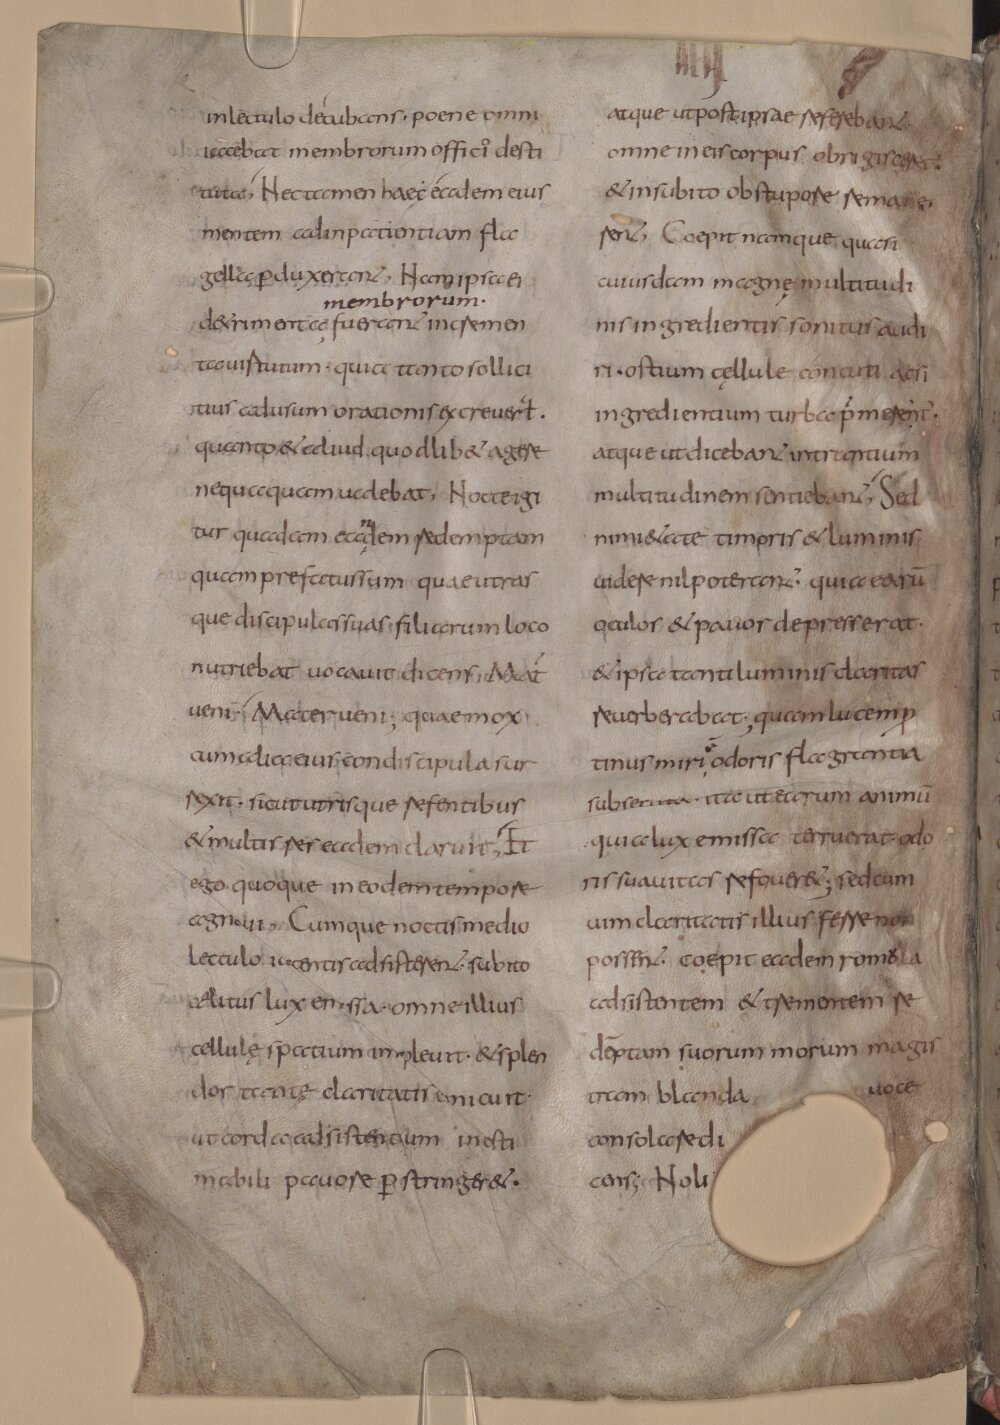 IIII
inlectulo decubans. poene omni
iacebat membrorum offici desti
tuta, Nec tamen haec eadem eius
mentem adinpatientiam fla
gella ꝑduxerant, Nam ipsa ei
membrorum.
detrimenta fuerant incremen
ta uistutum. quia tanto sollici
tius adusum orationis excreuert.
quanto & aliud quodlib& agere
nequaquam uadebat, Nocte igi
tur quadam eandem redemptam
quam prefatussum quae utras
que discipulas suas filiarum loco
nutriebat uocauit dicens; Mat
ueni; Mater ueni; quae mox
cum alia eius condiscipula sur
rexit. sicut utrisque referentibus
& multis res eadem claruit, Et
ego quoque in eodem tempore
cognoui, Cumque noctis medio
lectulo iacentis adsisterent. subito
celitus lux emissa. omne illius
cellulę spatium impleuit. & splen
dor tantę claritatis emicuit.
ut corda adsistentium inesti
mabili pauore ꝑstringer&.
atque ut post ipsae referebant.
omne in eis corpus obrigisceret.
& insubito obstupore remane
rent, Coepit namque quasi
cuiusdam magnę multitudi
nis ingredientis sonitus audi
ri. ostium cęllule concuti acsi
ingredientium turba premeret.
atque ut dicebant intrantium
multitudinem sentiebant, Sed
nimi&ate timoris & luminis
uidere nil poterant. quia earū
oculos & pauor depresserat.
& ipsa tanti luminis claritas
reuerberabat; quam lucem ꝓ
tinus miri odoris flagrantia
subsecuta. ita ut earum animū
quia lux emissa terruerat. odo
ris suauitas refouer&; sed cum
uim claritatis illius ferre non
possent. coepit eadem romula
adsistentem & trementem re
demptam suorum morum magis
tram blanda uoce
consolare di
cens; Noli